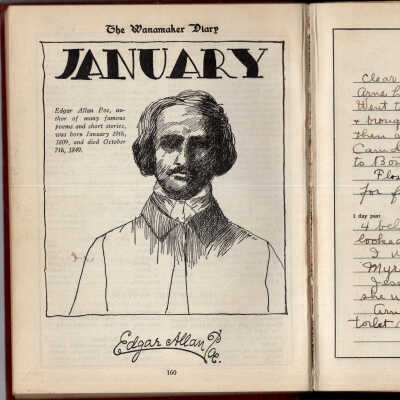 The Wanamaker Diary
JANUARY
Edgar Allan Poe, au-
thor of many famous
poems and short stories,
was born January 19th,
1809, and died October
7th, 1849.
Edgar Allan Poe.
160
Clear
Went t
& broug
then a
Camd
to Bos
Flos
for f
1 day past
4 bel
looked
I w
Myr
Jess
she w
toilet